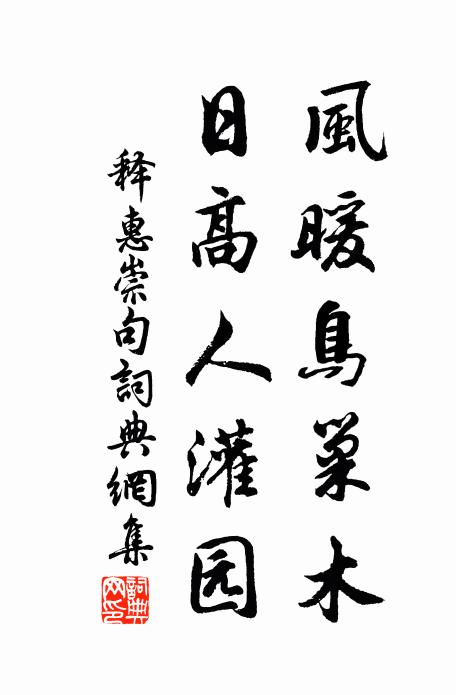 風暖鳥巢木
日高人灌园
释惠崇句詞典網集
詞典网印